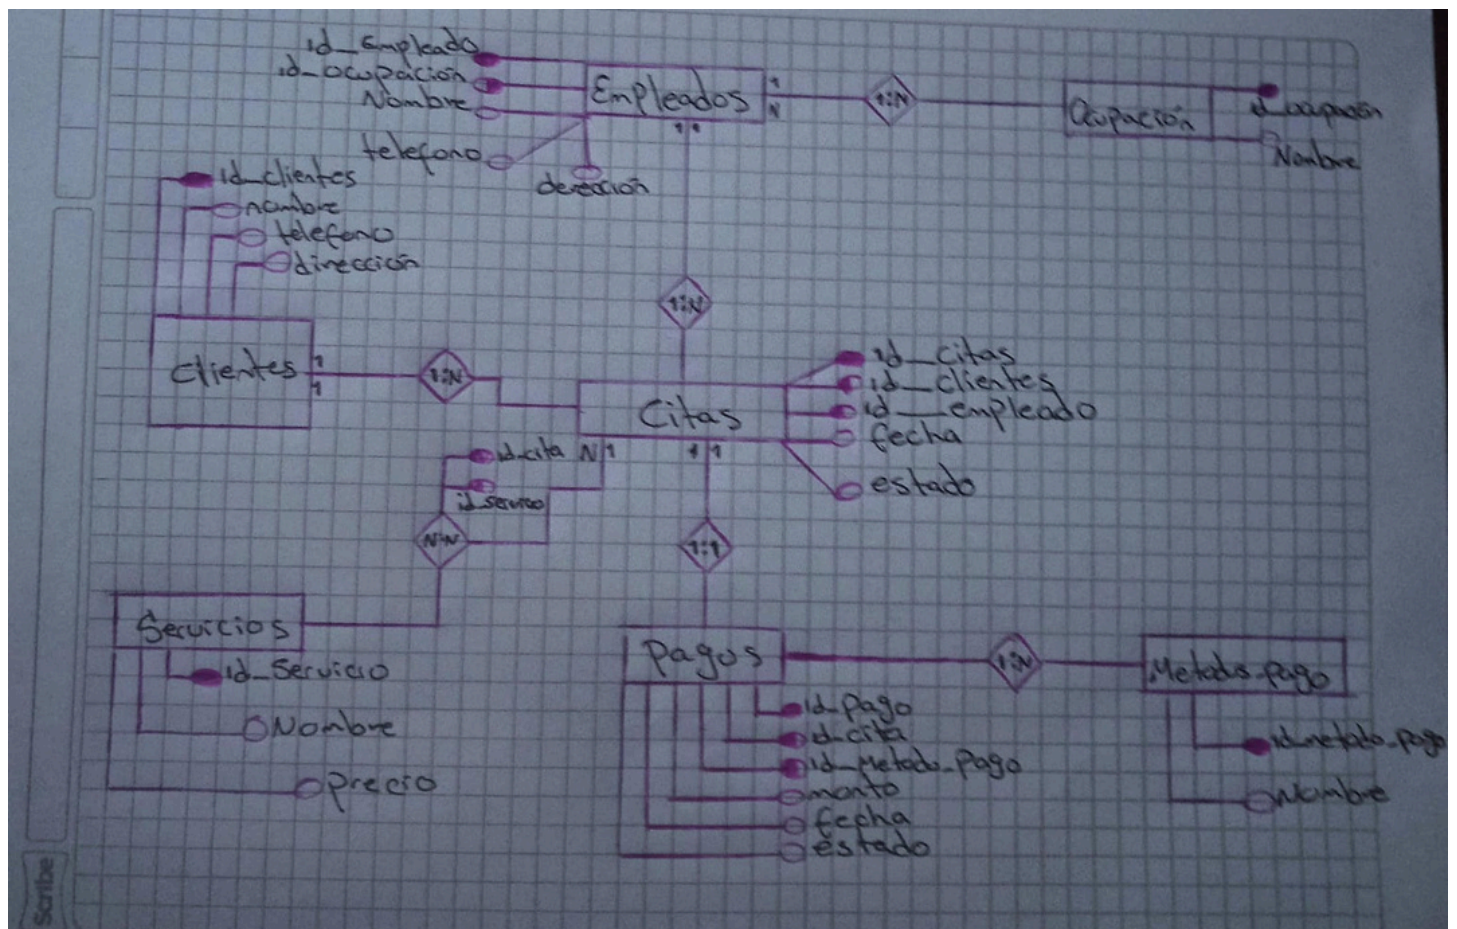 id_Empleado
id_ocupación
Nombre
telefono
derección
Empleados
1
N
1:N
Ocupación
id_ocupación
Nombre
1 1
id_clientes
nombre
telefono
dirección
1:N
Clientes
1
1
1:N
Citas
id_citas
id_clientes
id_empleado
fecha
estado
id_cita
N 1
1 1
id_servico
N:N
1:1
Servicios
id_Servicio
Nombre
precio
Pagos
1:N
Metado_pago
id_pago
id_cita
id_Metado_pago
monto
fecha
estado
id_metado_pago
Nombre
Scribe